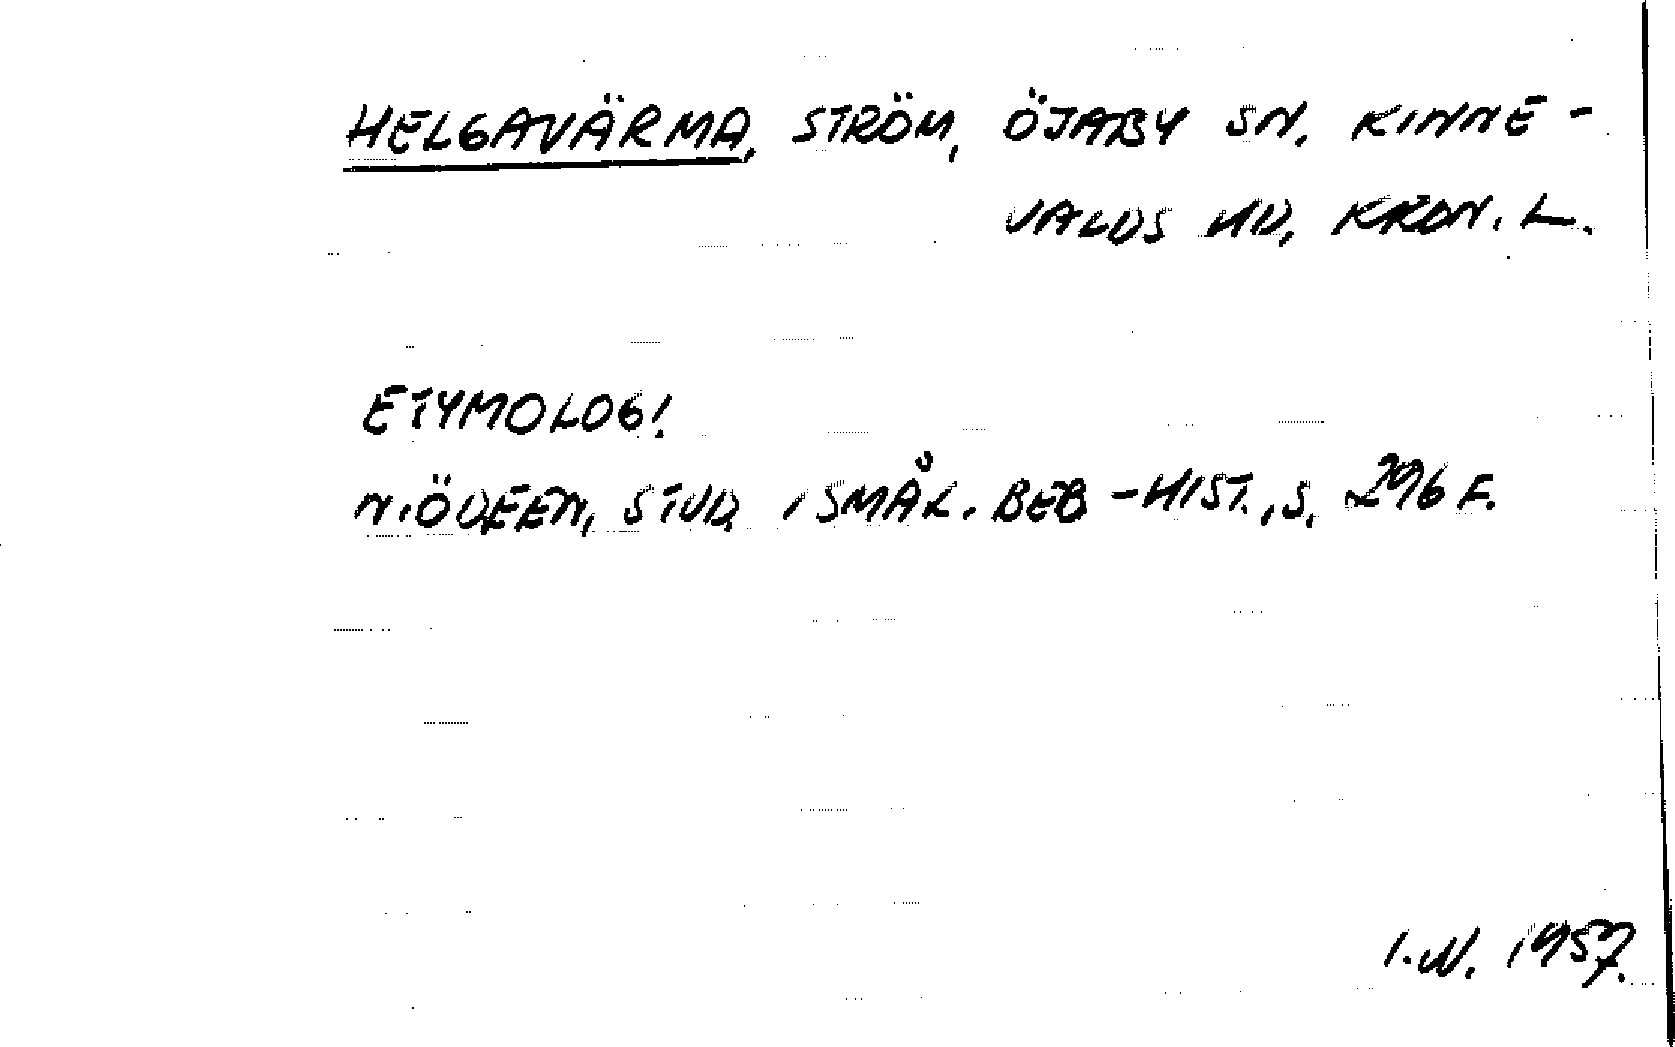 HELGAVÄRMA, STRÖM, ÖJABY SN, KINNE-
VALDS HD, KRON. L.
ETYMOLOGI.
N. ÖDEEN, STUD. I SMÅL. BEB-HIST., S. 296 F.
I.N. 1957.